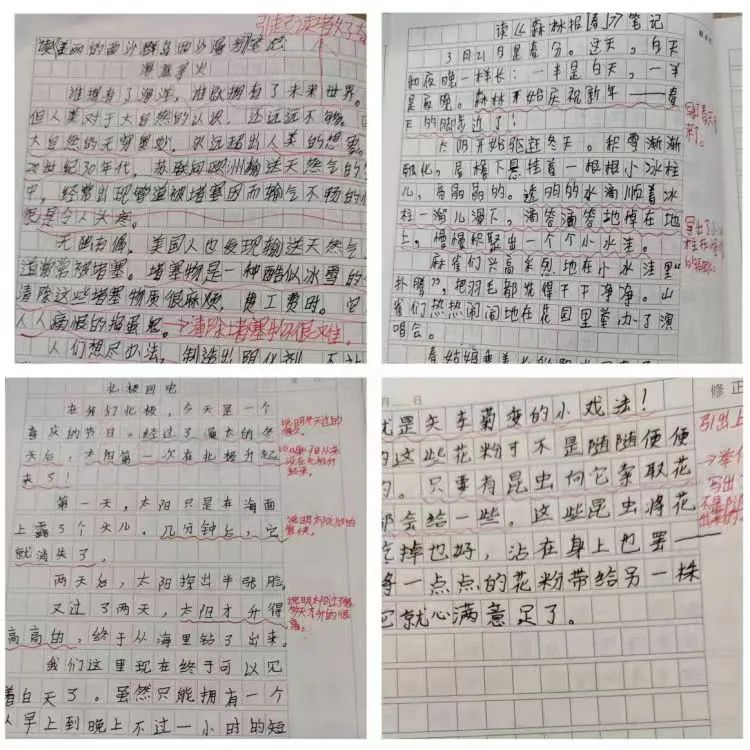 引起了读者
读《美丽的西沙群岛西沙遗刊》笔记
海底拿火
谁拥有了海洋，谁就拥有了未来世界。
但人类对于大自然的认识，还远远不够。
大自然的无穷奥妙，永远超出人类的想象。
20世纪30年代，苏联向欧洲输送天然气的
中，经常出现管道被堵塞因而输气不畅的
况是令人头疼。
无独有偶，美国人也发现输送天然气
道常常被堵塞。堵塞物是一种酷似冰雪的
清除这些堵塞物质很麻烦，费工费时。它
人人痛恨的捣蛋鬼。→清除堵塞物很
人们想尽办法，制造出明化剂，不
读《森林报〔春〕》笔记
3月21日是春分。这天，白天
和夜晚一样长：一半是白天，一半
是夜晚。森林开始庆祝新年——春
天的脚步近了！
太阳开始驱赶冬天。积雪渐渐
融化，屋檐下悬挂着一根根小冰柱
儿，亮晶晶的。透明的水滴顺着冰
柱一溜儿滑下，滴答滴答地掉在地
上，慢慢积聚出一个个小水洼。
麻雀们兴高采烈地在小水洼里“
扑腾”，把羽毛都洗得干干净净。山
雀们热热闹闹地在花园里举办了演
唱会。
写了春天
来了。
写出了小冰
柱在
北极回电
在我们北极，今天是一个
喜庆的节日。经过了漫长的冬
天后，太阳第一次在北极升起
来了！
第一天，太阳只是在海面
上露了个头儿。几分钟后，它
就消失了。
两天后，太阳探出半张脸。
又过了两天，太阳才升得
高高的，终于从海里钻了出来。
我们这里现在终于可以见
着白天了。虽然只能拥有一个
从早上到晚上不过一小时的短
说明冬天过的
很久。
说明太阳从来
没在北极升
起来。
说明太阳落的
很快。
说明太阳过了很
多天才升的很
高。
月　日
修正
就是矢车菊变的小戏法！
的这些花粉于不是随随便便
的。只要有昆虫向它索取花
都会给一些。这些昆虫将花
吃掉也好，沾在身上也罢——
将一点点的花粉带给另一株
它就心满意足了。
引出上
→举
写出了
不是随